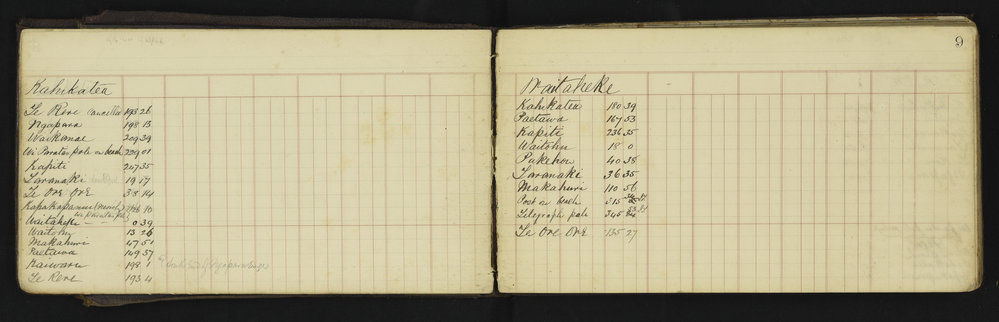 Kahikatea
Te Rere Cancelled 193 26
Ngapara 198 13
Waikanae 209 39
Wi Paratas pole on beach 239 01
Kapiti 247 35
Taranaki 19 17
Te Ore Ore 38 14
Kapakapanui
Waitaheke 0 39
Waitohu 13 26
Makahuri 47 51
Paetawa 109 37
198 1
Te Rere 193 4
9
Waitaheke
Kahikatea 180 39
Paetawa 167 53
Kapiti 236 35
Waitohu 18 0
Pukehou 40 38
Taranaki 36 35
Makahuri 110 56
Post on beach 315
Telegraph pole 345
Te Ore Ore 135 27